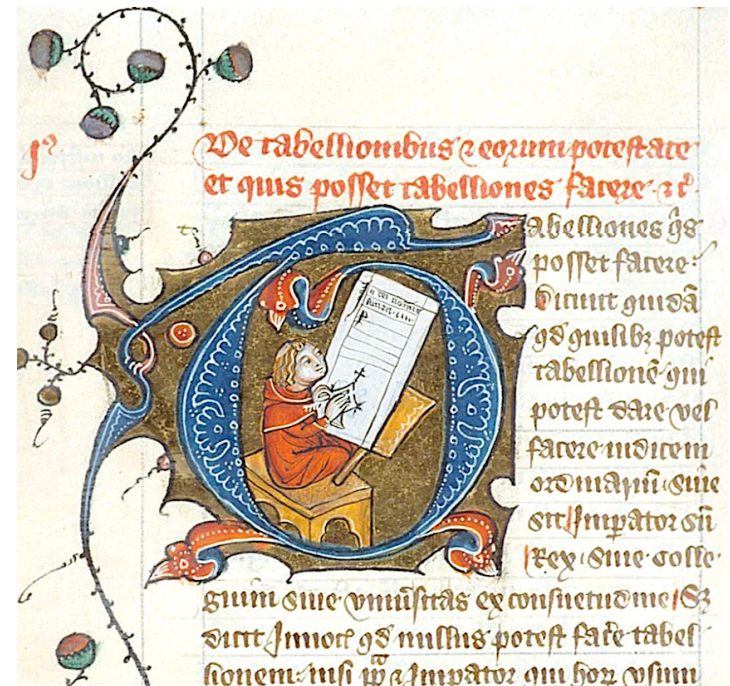 De tabellionibus ⁊ eorum potestate
et quis posset tabelliones facere · ⁊ c̉
Tabelliones q̉s
posset facere:
Dicunt quidā
qđ quilibꝫ potest
tabellionē qui
potest dare vel
facere iudicem
ordinariū · siue
sit Imꝑator siū
Rex · siue colle
gium siue vniũsitas ex consuetudine Sꝫ
dicit Innoc̄ qđ nullus potest fac̄e tabel
lionem: nisi pp̄a ⁊ Imꝑator qui horꝫ vsum